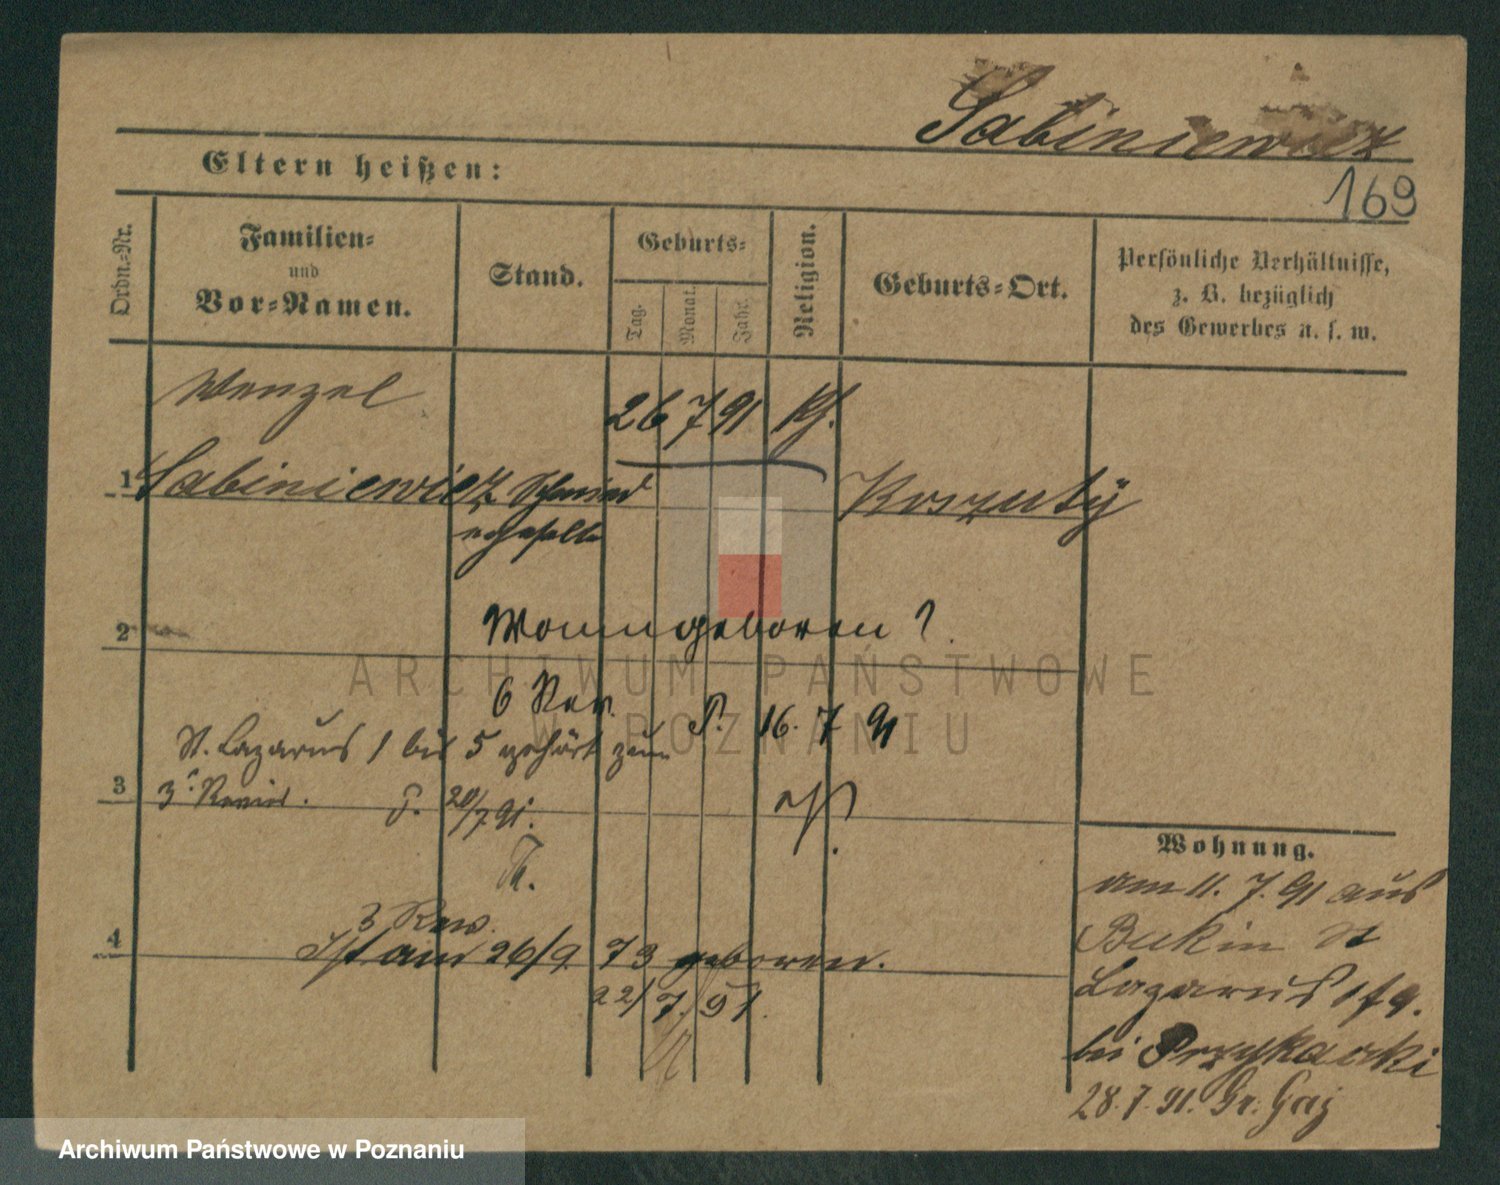 Sabiniewicz
Eltern heißen:
169
Ordn.-Nr.
Familien-
und
Vor-Namen.
Stand.
Geburts-
Tag.
Monat.
Jahr.
Religion.
Geburts-Ort.
Persönliche Verhältnisse,
z. B. bezüglich
des Gewerbes u. s. w.
Wenzel
26 7 91
1 Sabiniewicz Schmied
Koszuty
2
Wann geboren?
6 Rev. P. 16. 7 91
St. Lazarus 1 bis 5 gehört zum
3 3. Revier. P. 20/7 91.
Wohnung.
am 11. 7. 91 aus
St
Lazarus
bei
28. 7. 91.
3 Rev.
4 Ist am 26/9 73 geboren.
22/7. 91.
ARCHIWUM PAŃSTWOWE
W POZNANIU
Archiwum Państwowe w Poznaniu